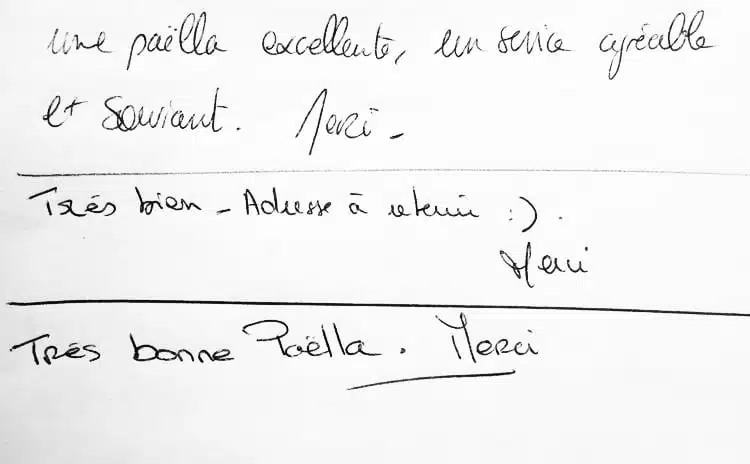 une paëlla excellente, un service agréable
et souriant. Merci -
Très bien - Adresse à retenir :) .
Merci
Très bonne Paëlla. Merci